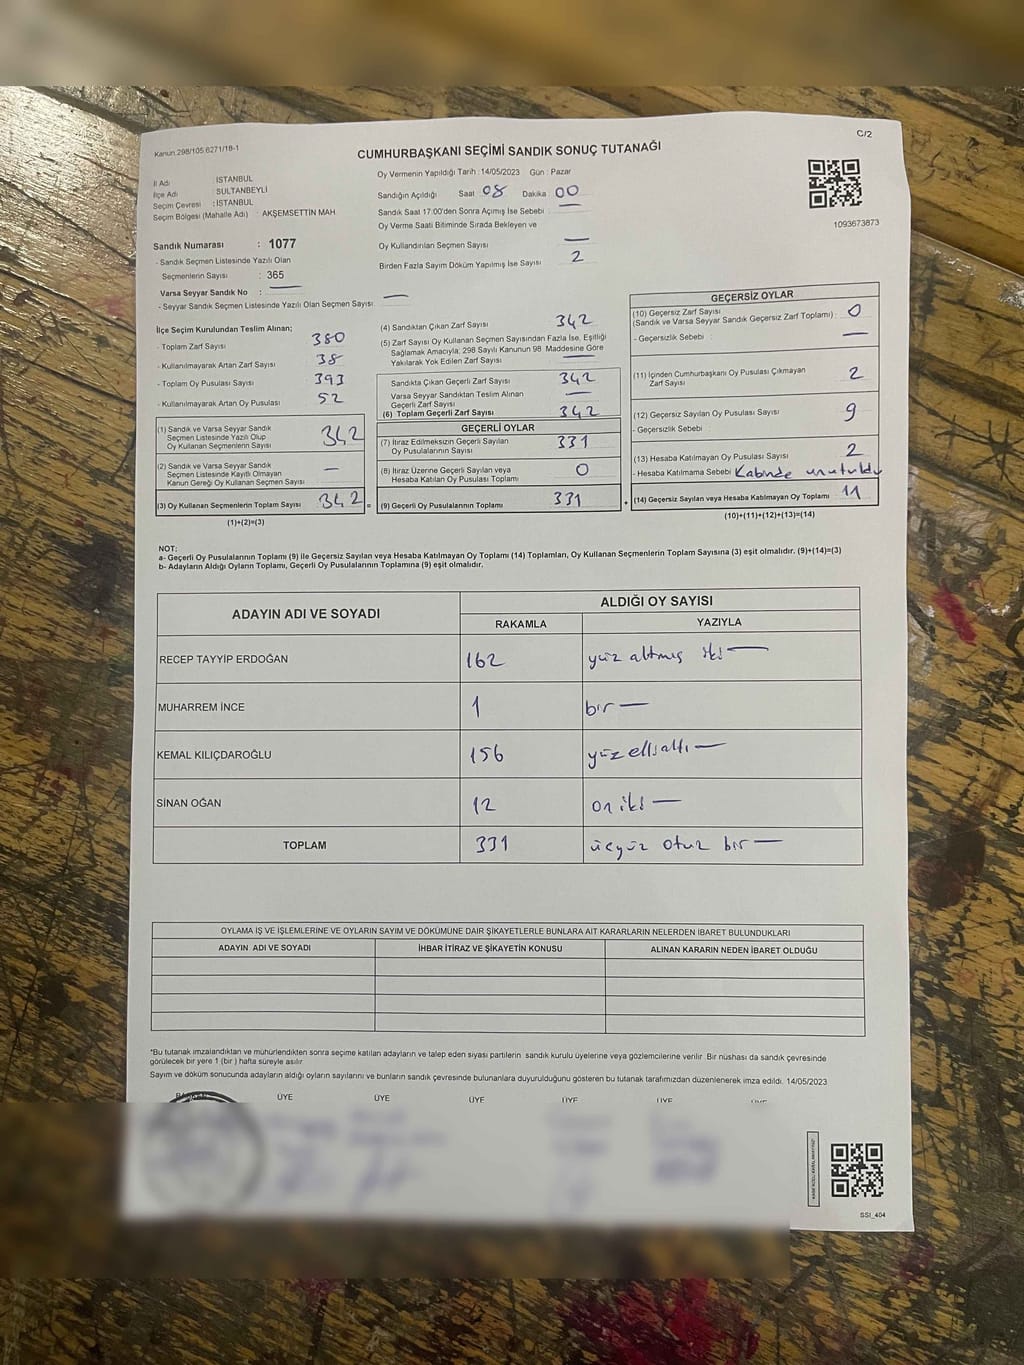 C/2
Kanun.298/105.6271/18-1
CUMHURBAŞKANI SEÇİMİ SANDIK SONUÇ TUTANAĞI
İl Adı : İSTANBUL
İlçe Adı : SULTANBEYLİ
Seçim Çevresi : İSTANBUL
Seçim Bölgesi (Mahalle Adı) : AKŞEMSETTİN MAH.
Oy Vermenin Yapıldığı Tarih : 14/05/2023 Gün : Pazar
Sandığın Açıldığı Saat 08 Dakika 00
Sandık Saat 17:00'den Sonra Açımış İse Sebebi : —
Oy Verme Saati Bitiminde Sırada Bekleyen ve
Oy Kullandırılan Seçmen Sayısı —
Birden Fazla Sayım Döküm Yapılmış İse Sayısı 2
1093673873
Sandık Numarası : 1077
- Sandık Seçmen Listesinde Yazılı Olan
Seçmenlerin Sayısı : 365
Varsa Seyyar Sandık No : —
- Seyyar Sandık Seçmen Listesinde Yazılı Olan Seçmen Sayısı: —
İlçe Seçim Kurulundan Teslim Alınan;
- Toplam Zarf Sayısı 380
- Kullanılmayarak Artan Zarf Sayısı 38
- Toplam Oy Pusulası Sayısı 393
- Kullanılmayarak Artan Oy Pusulası 52
(1) Sandık ve Varsa Seyyar Sandık
Seçmen Listesinde Yazılı Olup
Oy Kullanan Seçmenlerin Sayısı 342
(2) Sandık ve Varsa Seyyar Sandık
Seçmen Listesinde Kayıtlı Olmayan
Kanun Gereği Oy Kullanan Seçmen Sayısı —
(3) Oy Kullanan Seçmenlerin Toplam Sayısı 342 =
(1)+(2)=(3)
(4) Sandıktan Çıkan Zarf Sayısı 342
(5) Zarf Sayısı Oy Kullanan Seçmen Sayısından Fazla İse, Eşitliği
Sağlamak Amacıyla; 298 Sayılı Kanunun 98. Maddesine Göre
Yakılarak Yok Edilen Zarf Sayısı —
Sandıkta Çıkan Geçerli Zarf Sayısı 342
Varsa Seyyar Sandıktan Teslim Alınan
Geçerli Zarf Sayısı —
(6) Toplam Geçerli Zarf Sayısı 342
GEÇERLİ OYLAR
(7) İtiraz Edilmeksizin Geçerli Sayılan
Oy Pusulasının Sayısı 331
(8) İtiraz Üzerine Geçerli Sayılan veya
Hesaba Katılan Oy Pusulası Toplamı 0
(9) Geçerli Oy Pusulalarının Toplamı 331 +
GEÇERSİZ OYLAR
(10) Geçersiz Zarf Sayısı
(Sandık ve Varsa Seyyar Sandık Geçersiz Zarf Toplamı) : 0
- Geçersizlik Sebebi : —
(11) İçinden Cumhurbaşkanı Oy Pusulası Çıkmayan
Zarf Sayısı 2
(12) Geçersiz Sayılan Oy Pusulası Sayısı 9
- Geçersizlik Sebebi :
(13) Hesaba Katılmayan Oy Pusulası Sayısı 2
- Hesaba Katılmama Sebebi Kabinde unutuldu
(14) Geçersiz Sayılan veya Hesaba Katılmayan Oy Toplamı 11
(10)+(11)+(12)+(13)=(14)
NOT:
a- Geçerli Oy Pusulalarının Toplamı (9) ile Geçersiz Sayılan veya Hesaba Katılmayan Oy Toplamı (14) Toplamları, Oy Kullanan Seçmenlerin Toplam Sayısına (3) eşit olmalıdır. (9)+(14)=(3)
b- Adayların Aldığı Oyların Toplamı, Geçerli Oy Pusulalarının Toplamına (9) eşit olmalıdır.
ADAYIN ADI VE SOYADI
ALDIĞI OY SAYISI
RAKAMLA YAZIYLA
RECEP TAYYİP ERDOĞAN 162 yüz altmış iki —
MUHARREM İNCE 1 bir —
KEMAL KILIÇDAROĞLU 156 yüz elli altı —
SİNAN OĞAN 12 on iki —
TOPLAM 331 üçyüz otuz bir —
OYLAMA İŞ VE İŞLEMLERİNE VE OYLARIN SAYIM VE DÖKÜMÜNE DAİR ŞİKAYETLERLE BUNLARA AİT KARARLARIN NELERDEN İBARET BULUNDUKLARI
ADAYIN ADI VE SOYADI İHBAR İTİRAZ VE ŞİKAYETİN KONUSU ALINAN KARARIN NEDEN İBARET OLDUĞU
*Bu tutanak imzalandıktan ve mühürlendikten sonra seçime katılan adayların ve talep eden siyasi partilerin sandık kurulu üyelerine veya gözlemcilerine verilir. Bir nüshası da sandık çevresinde
görülecek bir yere 1 (bir ) hafta süreyle asılır.
Sayım ve döküm sonucunda adayların aldığı oyların sayılarını ve bunların sandık çevresinde bulunanlara duyurulduğunu gösteren bu tutanak tarafımızdan düzenlenerek imza edildi. 14/05/2023
BAŞKAN ÜYE ÜYE ÜYE ÜYE ÜYE
SSI_404